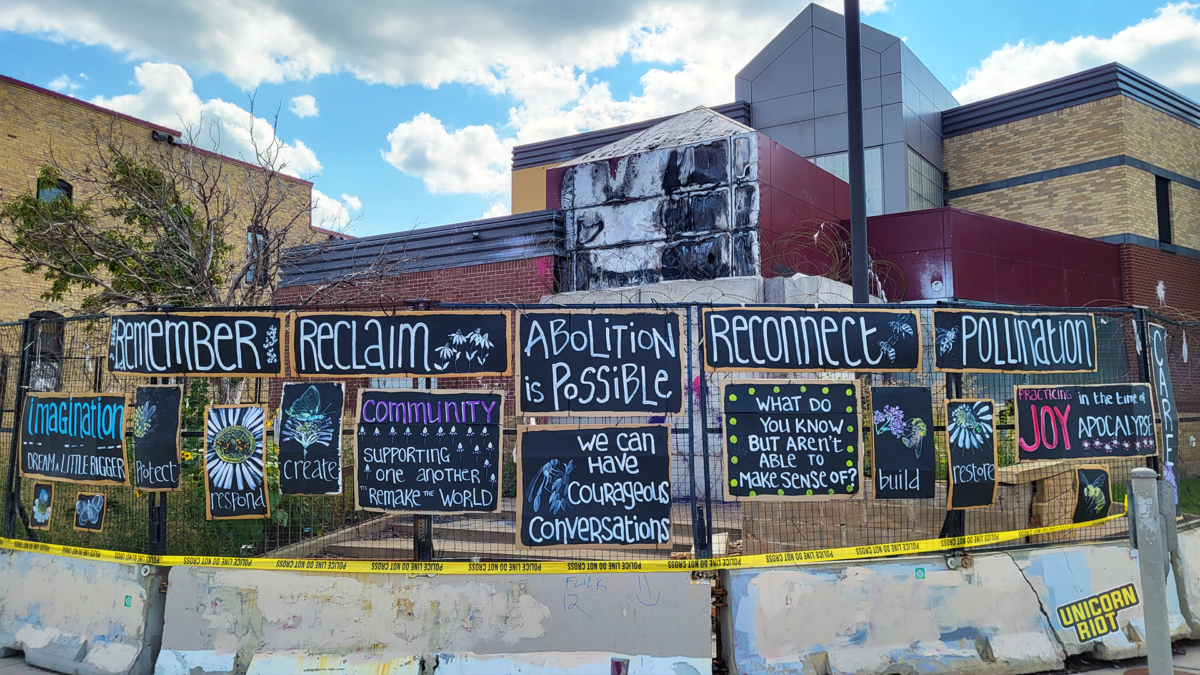 REMEMBER
RECLAIM
ABOLITION
is POSSIBLE
RECONNECT
POLLINATION
CARE
imagination
DREAM A LITTLE BIGGER
Protect
respond
create
COMMUNITY
SUPPORTING
ONE ANOTHER
TO REMAKE THE WORLD
WE CAN
HAVE
COURAGEOUS
CONVERSATIONS
WHAT DO
YOU KNOW
BUT AREN'T
ABLE TO
MAKE SENSE OF?
build
restore
PRACTICING
JOY in the time of
APOCALYPSE
POLICE LINE DO NOT CROSS POLICE LINE DO NOT CROSS POLICE LINE DO NOT CROSS
12
UNICORN
RIOT